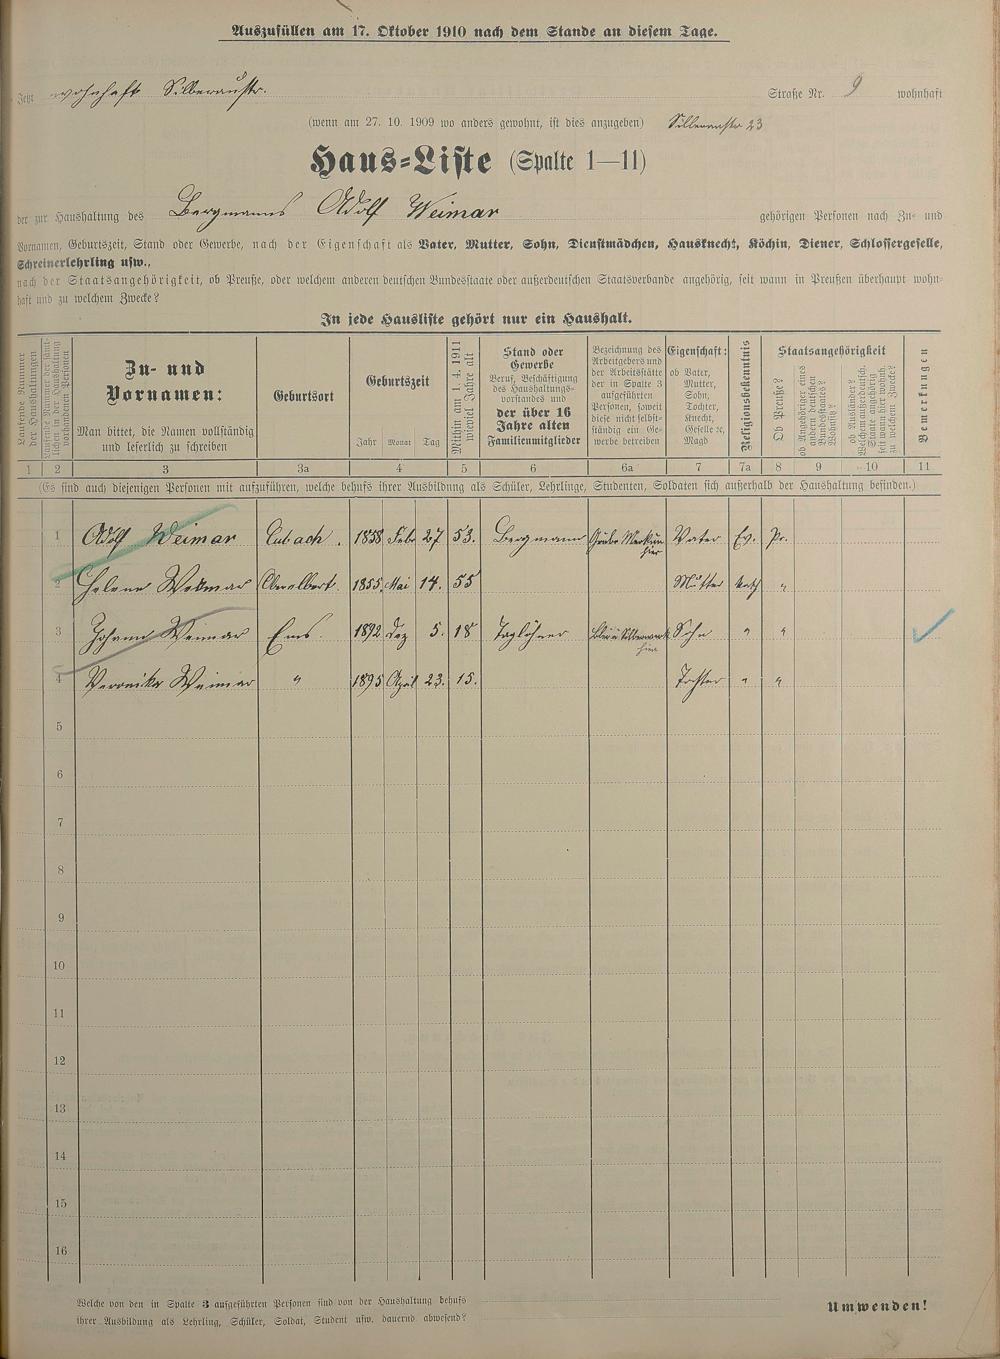 Auszufüllen am 17. Oktober 1910 nach dem Stande an diesem Tage.
Jetzt wohnhaft Silberaustr. Straße Nr. 9 wohnhaft
(wenn am 27. 10. 1909 wo anders gewohnt, ist dies anzugeben) Silberaustr 23
Haus-Liste (Spalte 1—11)
der zur Haushaltung des Bergmanns Adolf Weimar gehörigen Personen nach Zu- und
Vornamen, Geburtszeit, Stand oder Gewerbe, nach der Eigenschaft als Vater, Mutter, Sohn, Dienstmädchen, Hausknecht, Köchin, Diener, Schlossergeselle,
Schreinerlehrling usw.,
nach der Staatsangehörigkeit, ob Preuße, oder welchem anderen deutschen Bundesstaate oder außerdeutschen Staatsverbande angehörig, seit wann in Preußen überhaupt wohn-
haft und zu welchem Zwecke?
In jede Hausliste gehört nur ein Haushalt.
Laufende Nummer der Haushaltungen
Laufende Nummer der sämtlichen in der Haushaltung vorhandenen Personen
Zu- und
Vornamen:
Man bittet, die Namen vollständig
und leserlich zu schreiben
Geburtsort
Geburtszeit
Jahr Monat Tag
Mithin am 1. 4. 1911 wieviel Jahre alt
Stand oder
Gewerbe
Beruf, Beschäftigung
des Haushaltungs-
vorstandes und
der über 16
Jahre alten
Familienmitglieder
Bezeichnung des
Arbeitgebers und
der Arbeitsstätte
der in Spalte 3
aufgeführten
Personen, soweit
diese nicht selbst-
ständig ein Ge-
werbe betreiben
Eigenschaft:
ob Vater,
Mutter,
Sohn,
Tochter,
Knecht,
Geselle ec,
Magd
Religionsbekenntnis
Staatsangehörigkeit
Ob Preuße?
ob Angehöriger eines andern deutschen Bundesstaates? Wohnsitz?
ob Ausländer? Welchem außerdeutsch. Staate angehörig seit wann hier wohnh. zu welchem Zwecke?
Bemerkungen
1 2 3 3a 4 5 6 6a 7 7a 8 9 10 11
(Es sind auch diejenigen Personen mit aufzuführen, welche behufs ihrer Ausbildung als Schüler, Lehrlinge, Studenten, Soldaten sich außerhalb der Haushaltung befinden.)
1 Adolf Weimar Eubach. 1858 Febr 27 53. Bergmann Grube Merkur hier Vater Ev. Pr.
2 Helene Weimar Oberelbert. 1855. Mai 14. 55 Mutter Kath "
3 Johann Weimar Ems. 1892 Dez 5. 18 Taglöhner Blei u Silberwerk hier Sohn " "
4 Veronika Weimar " 1895 April 23. 15. Tochter " "
5
6
7
8
9
10
11
12
13
14
15
16
Welche von den in Spalte 3 aufgeführten Personen sind von der Haushaltung behufs
ihrer Ausbildung als Lehrling, Schüler, Soldat, Student usw. dauernd abwesend?
Umwenden!